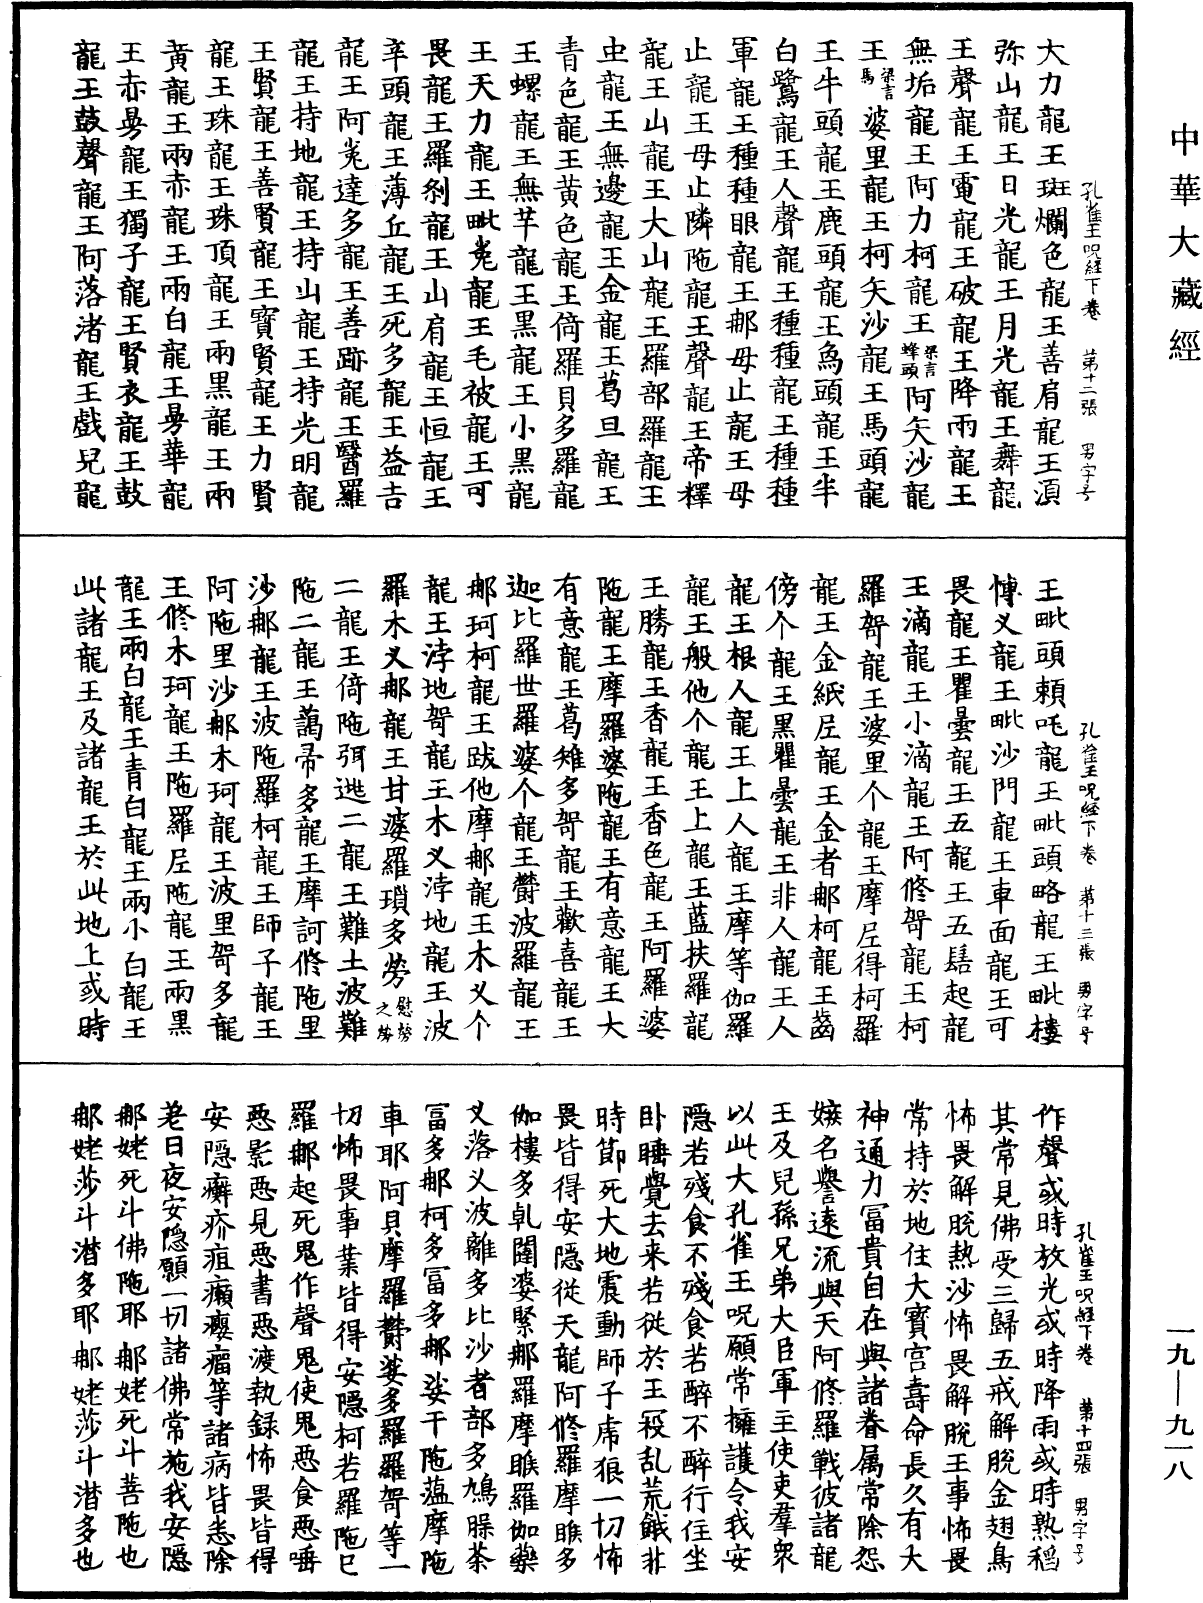 中華大藏經
孔雀王呪経下卷 第十二張 男字号
大力龍王斑斕色龍王善肩龍王湏
弥山龍王日光龍王月光龍王舞龍
王聲龍王電龍王破龍王降雨龍王
無垢龍王阿力柯龍王梁言蜂頭阿矢沙龍
王梁言馬婆里龍王柯矢沙龍王馬頭龍
王牛頭龍王鹿頭龍王魚頭龍王半
白鷺龍王人聲龍王種種龍王種種
軍龍王種種眼龍王郍母止龍王母
止龍王母止隣陁龍王聲龍王帝釋
龍王山龍王大山龍王羅部羅龍王
虫龍王無邊龍王金龍王葛旦龍王
青色龍王黄色龍王倚羅貝多羅龍
王螺龍王無芊龍王黒龍王小黒龍
王天力龍王毗嵬龍王毛被龍王可
畏龍王羅刹龍王山肩龍王恒龍王
辛頭龍王薄丘龍王死多龍王益吉
龍王阿嵬達多龍王善跡龍王醫羅
龍王持地龍王持山龍王持光明龍
王賢龍王善賢龍王寶賢龍王力賢
龍王珠龍王珠頂龍王兩黒龍王兩
黃龍王兩赤龍王兩白龍王㝵華龍
王赤㝵龍王獨子龍王賢衣龍王鼓
龍王鼓聲龍王阿落渚龍王戲兒龍
孔雀王呪経下卷 第十三張 男字号
王毗頭頼吒龍王毗頭略龍王毗樓
愽义龍王毗沙門龍王車面龍王可
畏龍王瞿曇龍王五龍王五髻起龍
王滴龍王小滴龍王阿修哿龍王柯
羅哿龍王婆里个龍王摩㞐得柯羅
龍王金紙㞐龍王金者郍柯龍王齒
傍个龍王黒瞿曇龍王非人龍王人
龍王根人龍王上人龍王摩等伽羅
龍王般他个龍王上龍王藍扶羅龍
王勝龍王香龍王香色龍王阿羅婆
陁龍王摩羅婆陁龍王有意龍王大
有意龍王葛雉多哿龍王歡喜龍王
迦比羅世羅婆个龍王欝波羅龍王
郍珂柯龍王跋他摩郍龍王木义个
龍王浡地哿龍王木义浡地龍王波
羅木义郍龍王甘婆羅瑣多勞慰勞之勞
二龍王倚陁弭迯二龍王難土波難
陁二龍王藹帝多龍王摩訶修陁里
沙郍龍王波陁羅柯龍王師子龍王
阿陁里沙郍木珂龍王波里哿多龍
王修木珂龍王陁羅㞐陁龍王兩黒
龍王兩白龍王青白龍王兩小白龍王
此諸龍王及諸龍王於此地上或時
孔雀王呪経下卷 第十四張 男字号
作聲或時放光或時降雨或時熟稻
其常見佛受三歸五戒解脫金翅鳥
怖畏解脫熱沙怖畏解脫王事怖畏
常持於地住大寶宫壽命長久有大
神通力冨貴自在與諸眷属常除怨
嫉名譽遠流與天阿修羅戰彼諸龍
王及兒孫兄弟大臣軍主使吏羣衆
以此大孔雀王呪願常擁護令我安
隱若殘食不殘食若醉不醉行住坐
卧睡覺去来若従於王役乱荒餓非
時節死大地震動師子虎狼一切怖
畏皆得安隱從天龍阿修羅摩睺多
伽樓多乹闥婆緊郍羅摩睺羅伽藥
义落义波離多比沙者部多鳩腺茶
冨多郍柯多冨多郍娑干陁蕰摩陁
車耶阿貝摩羅欝娑多羅羅哿等一
切怖畏事業皆得安隱柯若羅陁巳
羅郍起死鬼作聲鬼使鬼惡食惡唾
惡影惡見惡書惡渡執録怖畏皆得
安隱癬疥疽癩癭瘤等諸病皆悉除
差日夜安隐願一切諸佛常施我安隱
郍姥死斗佛陁耶 郍姥死斗菩陁也
郍姥莎斗潜多耶 郍姥莎斗潜多也
一九—九一八